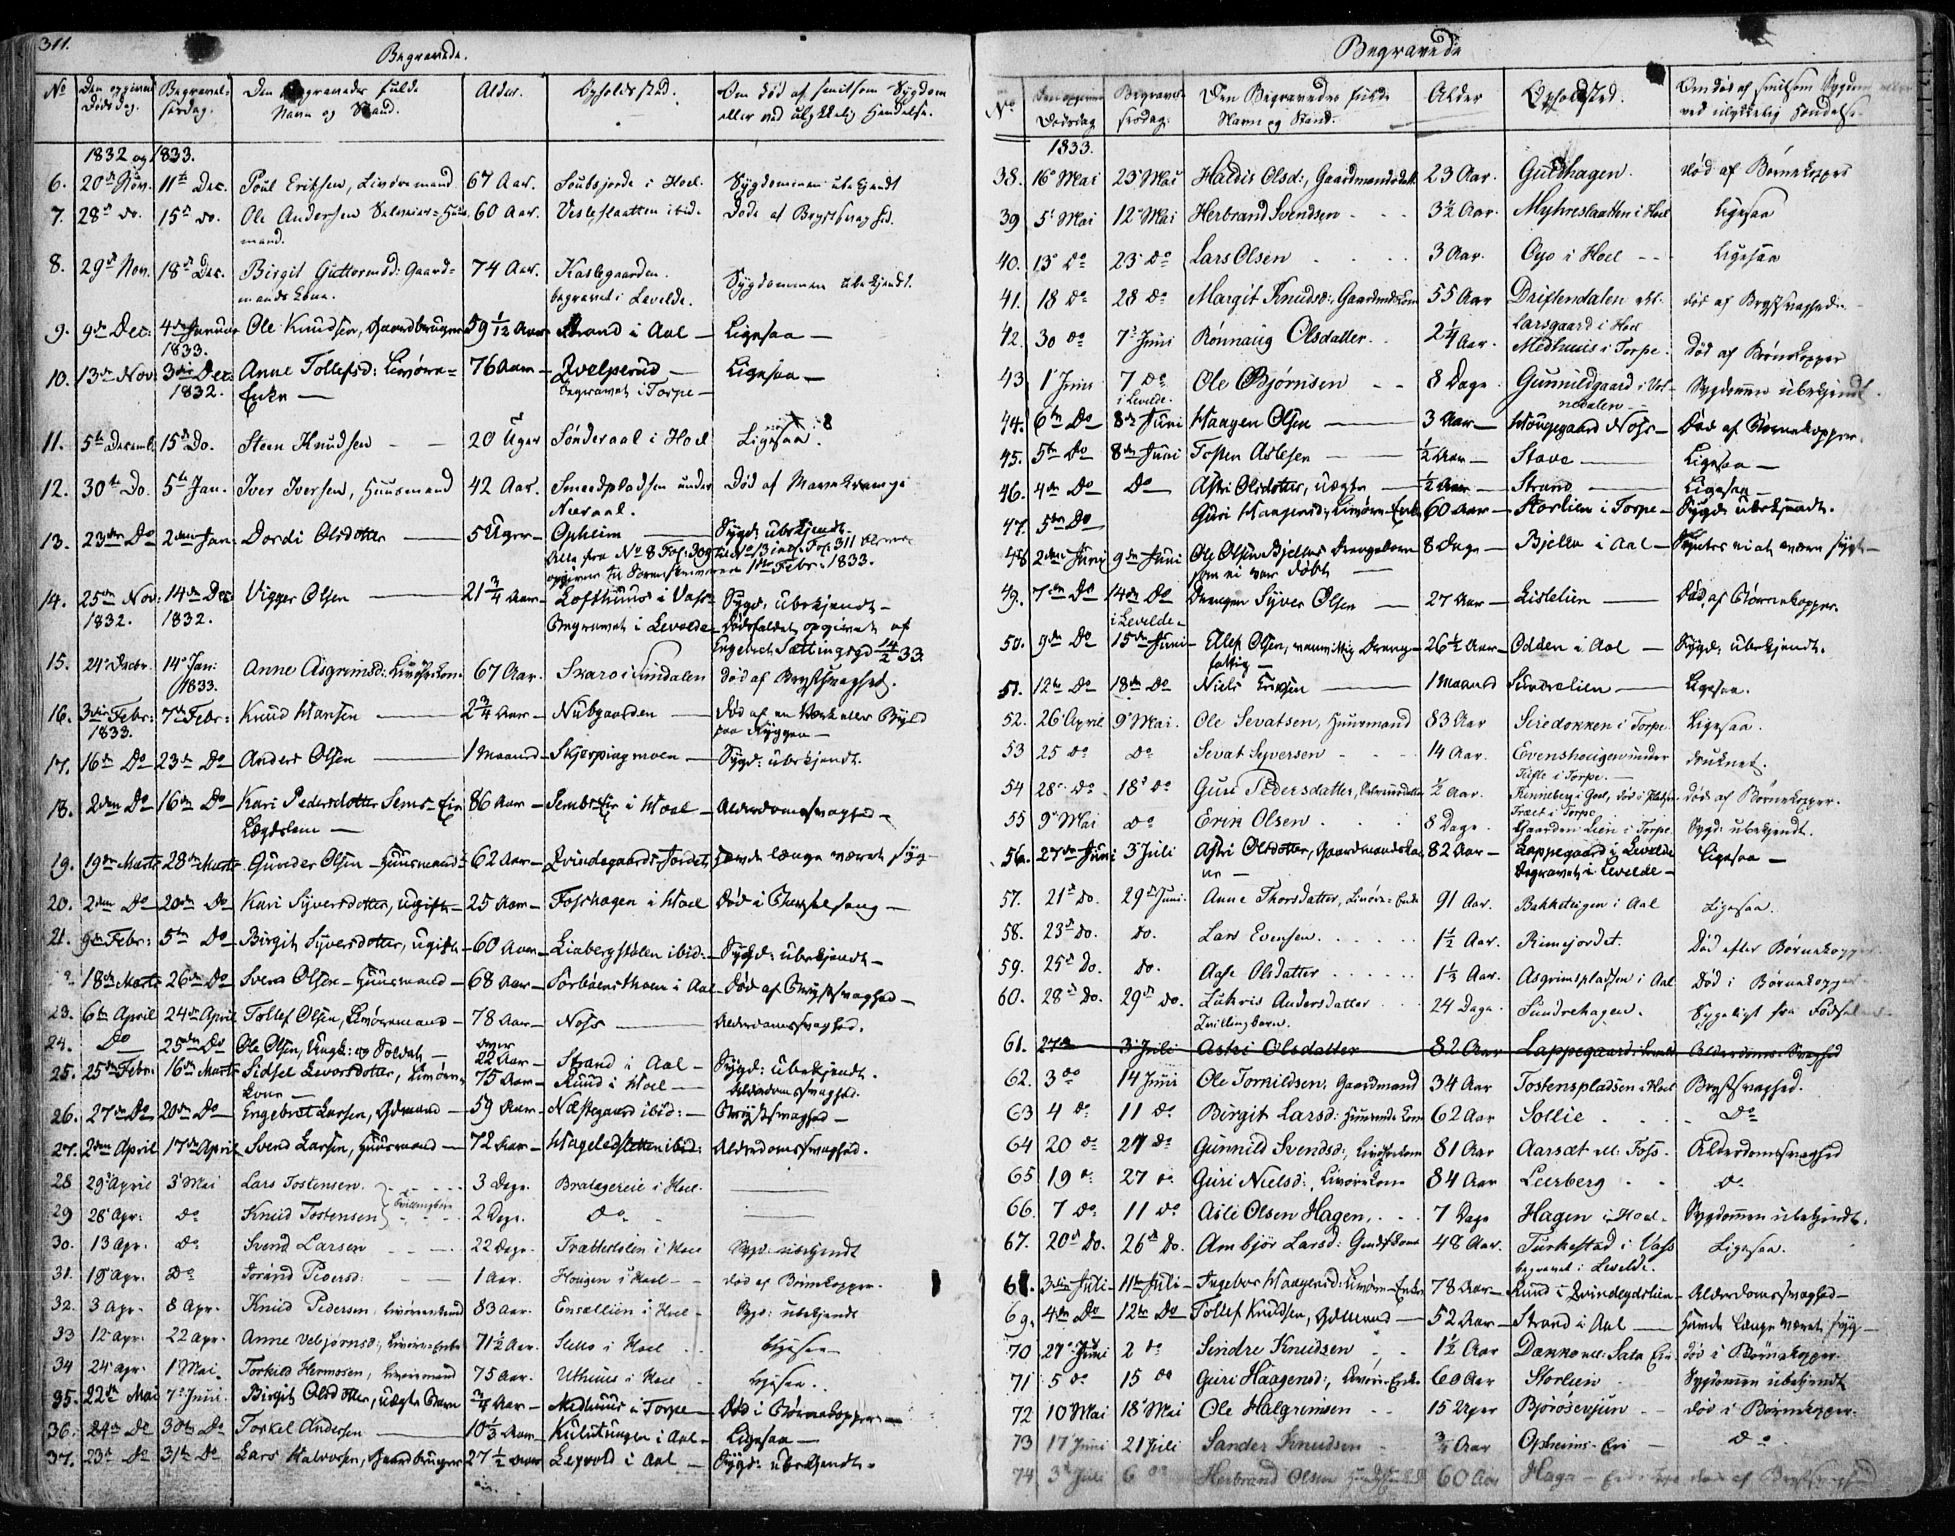 311.
Begravede.
No Den opgivne Dødsdag. Begravelsesdag. Den Begravedes fulde Navn og Stand. Alder. Opholdssted. Om død af smitsom Sygdom eller ved ulykkelig Hændelse.
1832 og 1833.
6. 20de Nov. 11te Dec. Poul Eriksen, Livøremand 67 Aar. i Hoel. Sygdommen ubekjendt
7. 28de do. 15de do. Ole Andersen 60 Aar. Vesleslaatten ibid. Døde af Brystsvaghed.
mand.
8. 29de Nov. 18de Dec. Birgit Guttormsd: Gaard- 74 Aar. Kaslegaarden. Sygdommen ubekjendt.
mands Kone. begravet i Levelde.
9. 9de Dec: 4de Januar Ole Knudsen, Gaardbruger 59 1/12 Aar Strand i Aal – Ligesaa –
1833.
10. 13de Nov: 3die Dec: Anne Tollefsd: Livøre= 76 Aar – Qvelprud – Ligesaa –
1832. Enke – Begravet i Torpe –
11. 5te Decemb. 15de Do. Steen Knudsen – – 20 Uger Sønderaal i Hoel Ligesaa.
12. 30te Do. 5te Jan. Iver Iversen, Huusmand 42 Aar. Smedpladsen under Død af Mavekrampe
Neeraal.
13. 23de Do 2den Jan: Dordi Olsdotter – 5 Uger – Opheim – Sygd: ubekjendt.
Alle fra No 8 Fol: 309 til No 13 Fol: 311 ere
opgivne til Sorenskriveren 1ste Febr: 1833.
14. 25de Nov: 14de Dec Vigger Olsen – 21 3/4 Aar – Lofthuus i Vass Sygd: ubekjendt –
1832. 1832. Begravet i Levelde – Dødsfaldet opgivet af
Engebret Sættingsgd 14/2 33.
15. 24de Decbr. 14de Jan: Anne Asgrimsd: Livørekone 67 Aar. Skaro i Sundalen død af Brystsvaghed.
1833.
16. 3die Febr: 7de Febr: Knud Hansen – 2 3/4 Aar – Nubgaarden – Død af en Værk eller Byld
1833. paa Ryggen –
17. 16de Do 23de Do Anders Olsen – 1 Maaned – Skjerpingmoen – Sygd: ubekjendt.
18. 2den Do 16de Do Kari Pedersdotter Sems-Eie 86 Aar – Sems Eie i Hoel – Alderdomssvaghed –
Lægdslem –
19. 19de Marts 28de Marts Gunder Olsen – Huusmand 62 Aar – Qvindegaards-Jordet, havde længe været syg –
20. 2den Do 20de Do Kari Syversdotter, ugift – 25 Aar – Foshagen i Hoel Død i Barselseng –
21. 9de Febr: 5te Do Birgit Syversdotter, ugift – 60 Aar – Liabergstølen ibid: – Sygd: ubekjendt –
18de Marts 26de Do Svend Olsen – Huusmand – 68 Aar – i Aal – Død af Brystsvaghed –
23. 6te April 24de April Tollef Olsen, Livøremand – 78 Aar – Noss – Alderdomssvaghed.
24. Do – 25de Do Ole Olsen, Ungk: og Soldat – over 22 Aar – Strand i Aal – Sygd: ubekjendt.
25. 25de Febr: 16de Marts Sidsel Levorsdotter, Livøre- 75 Aar – Ruud i Hoel – Alderdomssvaghed.
kone –
26. 27de Do 20de Do Engebret Larsen, Gdmand – 59 Aar – Næstegaard ibid: – Brystsvaghed –
27. 2den April 17de April Svend Larsen, Huusmand – 72 Aar – Hageledsletten ibid: Alderdomssvaghed.
28 29 April 3 Mai Lars Tostensen. 3 Dage. Bratagereie i Hoel.
29 28 Apr: Do Knud Tostensen Tvillingbørn 2 Dage. Do
30. 13 Apr. Do Svend Larsen 22 Dage. Trættestølen i Hoel Sygd: ubekjendt
31. 15 Apr. Do Jorand Pedersd: 1 Aar. Hougen i Hoel – død af Børnekopper.
32. 3 Apr. 8 Apr. Knud Pedersen, Livøremand 83 Aar. Ensællien i Hoel – Sygd: ubekjendt
33 12 Apr. 22 Apr. Anne Vebjørnsd: Livøre-Enke 71 1/2 Aar. i Hoel Ligesaa
34 24 Apr. 1 Mai. Torkild Hermosen, Livøremand 75 Aar. Uthuus i Hoel – Ligesaa.
35. 22de Mai 7de Juni. Birgit Olsdotter, uægte Barn 3/4 Aar – Medhuus i Torpe – Død i Børnekopper –
36. 24de Do 30te Do Torkel Andersen – 10 1/3 Aar – Kulutungen i Aal – Ligesaa –
37. 23de Do 31te Do Lars Halvorsen, Gaardbruger 27 1/2 Aar Leqvold i Aal – Sygd: ubekjendt.
Begravede
No Den opgivne Dødsdag Begravelsesdag: Den Begravedes fulde Navn og Stand. Alder Opholdsted. Om død af smitsom Sygdom eller ved ulykkelig Hændelse.
1833.
38. 16 Mai 23 Mai Haldis Olsd:, Gaardmandsdatter 23 Aar. Guldhagen. død af Børnekopper
39 5 Mai 12 Mai Herbrand Svendsen – – 3 1/2 Aar. Myhreslaatten i Hoel Ligesaa
40. 13 Do 23 Do Lars Olsen 3 Aar. Oyo i Hoel – – Ligesaa
41. 18 Do 28 Do Margit Knudsd:, Gaardmdskone 55 Aar Driftendalen død af Brystsvaghed.
Larsgaard i Hoel
42. 30 Do 7 Juni Rønnaug Olsdatter. 2 1/4 Aar. Medhuus i Torpe. død af Børnekopper
43 1 Juni 7 Do Ole Bjørnsen – – 8 Dage. Gunnildgaard i Vol- Sygdommen ubekjendt.
i Levelde. nedalen –
44. 6te Do 8de Juni Haagen Olsen – 3 Aar – Hougegaard Noss – Død af Børnekopper.
45. 5te Do 8de Juni Tosten Aslesen – 1/2 Aar – Stave – Ligesaa –
46. 4de Do Do – Astri Olsdotter, uægte – 1/2 Aar – Strand – Ligesaa –
47. 5te Do Guri Haagensd:, Livøre-Enke 60 Aar – Storlien i Torpe – Sygd: ubekjendt.
48 2den Juni 9de Juni Ole Olsen Bjellas Drengebarn 8 Dage – Bjella i Aal – Vidstes ei at være sygt –
som ei var døbt –
49. 7de Do 14de Do Drengen Syver Olsen – 27 Aar – Lislelien – Død af Børnekopper.
i Levelde –
50. 9de Do 15de Juni – Ellef Olsen, vanvittig Dreng – 26 1/2 Aar – Odden i Aal – Sygd: ubekjendt.
fattig –
51. 12te Do 18de Do Niels Eriksen – 1 Maaned Sundrelien – Ligesaa.
52. 26 April 9 Mai. Ole Sevatsen, Huusmand 83 Aar Siredokken i Torpe Ligesaa.
53 25 Do Do Sevat Syversen 14 Aar. Evenshougen under druknet.
Tufte i Torpe. –
54 28 Do 18 Do Guri Pedersdatter, 1/2 Aar. Renneberg i Goel, død i Pladsen død af Børnekopper.
Træet i Torpe.
55 9 Mai do Erik Olsen 8 Dage. Gaarden Lien i Torpe. Sygd: ubekjendt.
56. 27de Juni 3 Juli Astri Olsdotter, Gaardmandsko- 82 Aar – Lappegaard i Levelde Ligesaa –
ne – Begravet i Levelde –
57. 21de Do. 29de Juni. Anne Thorsdatter, Livøre-Enke 91 Aar. Bakketeigen i Aal Ligesaa.
58. 23de Do. Do. Lars Evensen. 1 1/2 Aar. Rimejordet. Død efter Børnekopper.
59. 25de Do. Do. Aase Olsdatter 1 1/3 Aar. Asgrimspladsen i Aal Død i Børnekopper.
60. 28de Do. 29de Do. Lukris Andersdatter 24 Dage. Sundrehagen. Sygeligt fra Fødselen.
Tvillingbarn.
61. 27de 3 Juli Astri Olsdatter 82 Aar Lappegaard i Levelde Alderdoms-Svaghed
62. 3 Do 14 Juni Ole Torkildsen, Gaardmand 34 Aar Tostenspladsen i Hoel Brystsvaghed.
63 4 Do 11 Do Birgit Larsd: Huusmds Kone 62 Aar Sollie Do
64 20 Do 27 Do Gunnild Svendsd:, Livørekone 81 Aar Aarsæt Foss. Alderdomssvaghed
65 19 Do 27 Do Guri Nielsd:, Livørekone 84 Aar Leerberg Do
66. 7 Do 11 Do Asle Olsen Hagen, 7 Dage Hagen i Hoel. Sygdommen ubekjendt.
67. 20de Do. 26de Do. Ambjør Larsd: 48 Aar. Turkestad i Vass Ligesaa.
begravet i Levelde.
68. 3die Juli – 11te Juli – Ingebor Haagensd: Livøre-Enke 78 Aar – Ruud i Qvindegdslien – Alderdomssvaghed –
69. 4de Do 12te Do Tollef Knudsen, Gdmand – 52 Aar – Strand i Aal – Havde længe været syg –
70 27 Juni 2 Do Sindre Knudsen 1 1/2 Aar død i Børnekopper.
71 5 Do 15 Do Guri Haagensd:, Livøre-Enke 60 Aar Storlien Sygdommen ubekjendt
72 10 Mai 18 Mai Ole Halgrimsen – – 15 Uger Bjørøsevjun – død i Børnekopper.
73 17 Juni 21 Juli Sander Knudsen 3/4 Aar Opheims-Eie – Do
74 3 Juli 6 Do Herbrand Olsen 60 Aar Haga død af Brystsvaghed